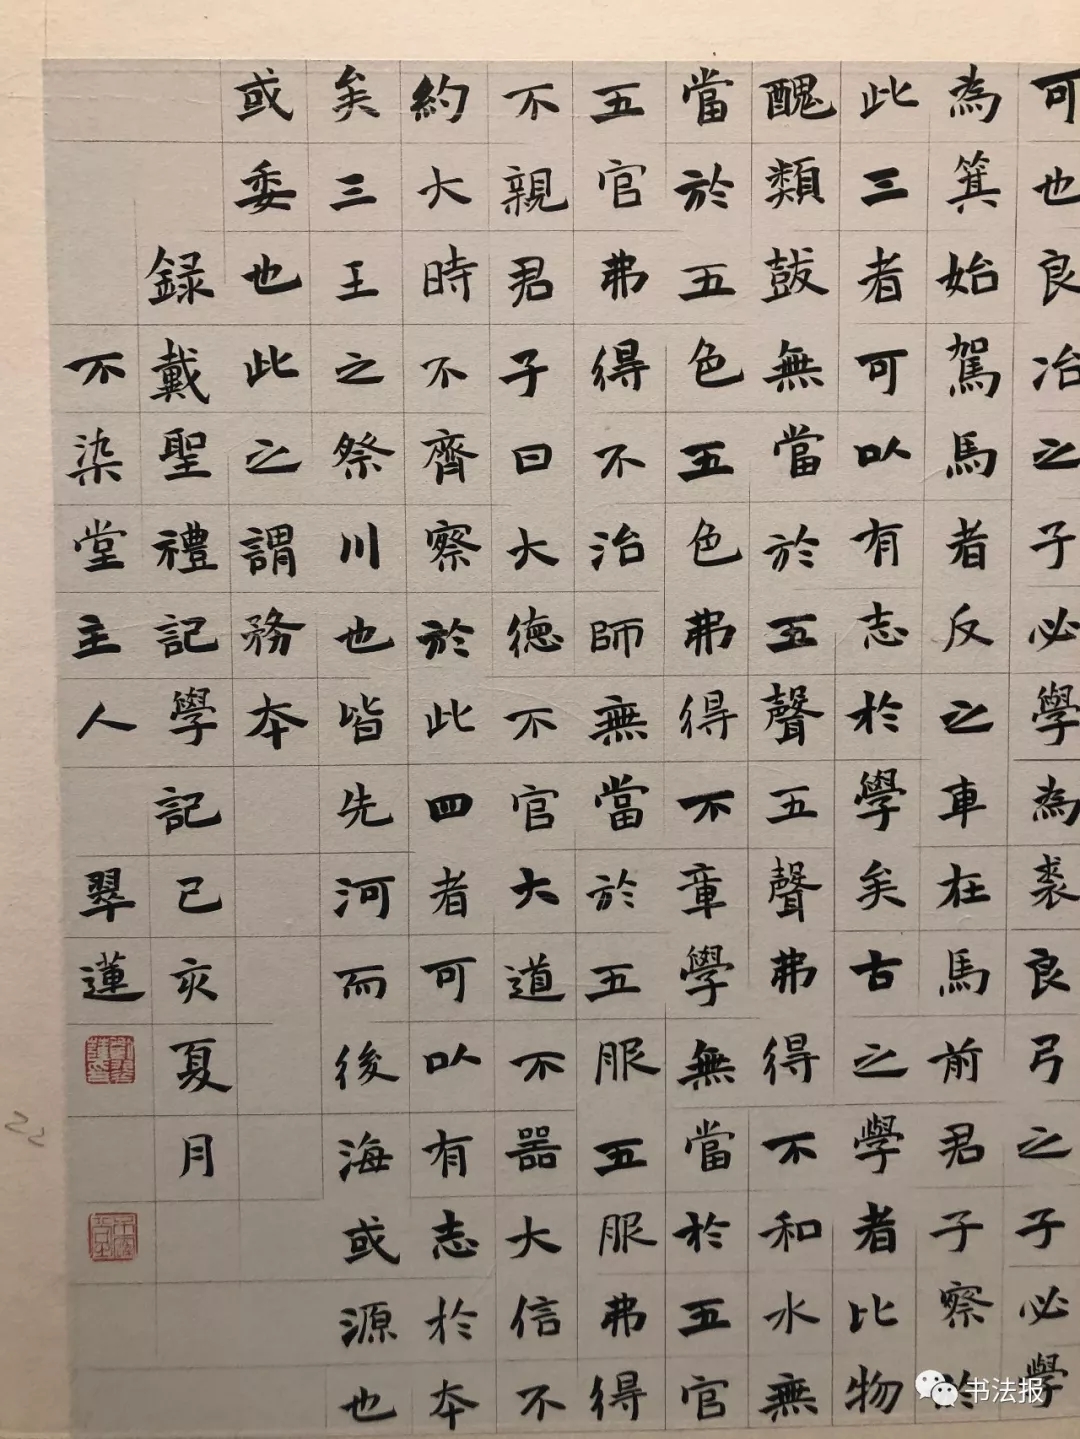 可也良冶之子必學為裘良弓之子必學
為箕始駕馬者反之車在馬前君子察於
此三者可以有志於學矣古之學者比物
醜類鼓無當於五聲五聲弗得不和水無
當於五色五色弗得不章學無當於五官
五官弗得不治師無當於五服五服弗得
不親君子曰大德不官大道不器大信不
約大時不齊察於此四者可以有志於本
矣三王之祭川也皆先河而後海或源也
或委也此之謂務本
録戴聖禮記學記己亥夏月
不染堂主人翠蓮
书法报